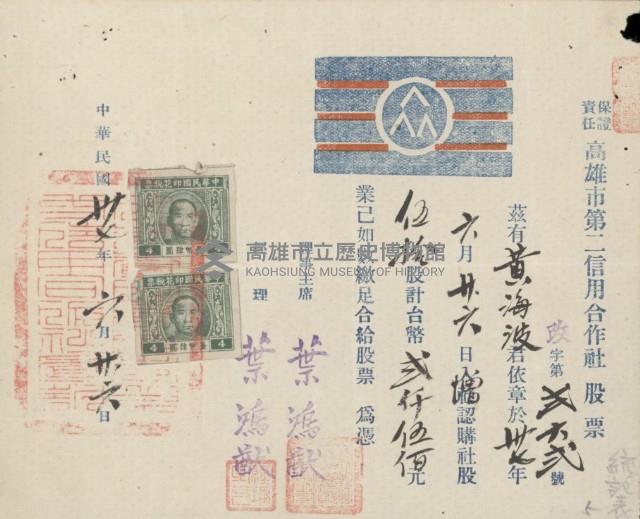 保證
責任
高雄市第二信用合作社 股票
改字第 號
茲有黃海波君依章於卅七年
六月廿六日增認購社股
伍拾股計台幣貳仟伍佰元
業已如數繳足合給股票 為憑
理事主席 葉鴻猷
理 葉鴻猷
中華民國卅七年六月廿六日
票稅花印國民華中
4
票稅花印國民華中
4
高雄市立歷史博物館
KAOHSIUNG MUSEUM OF HISTORY